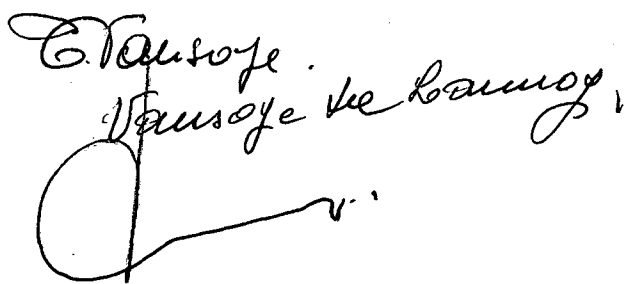 E. Vansoye.
Vansoye de Lannoy,